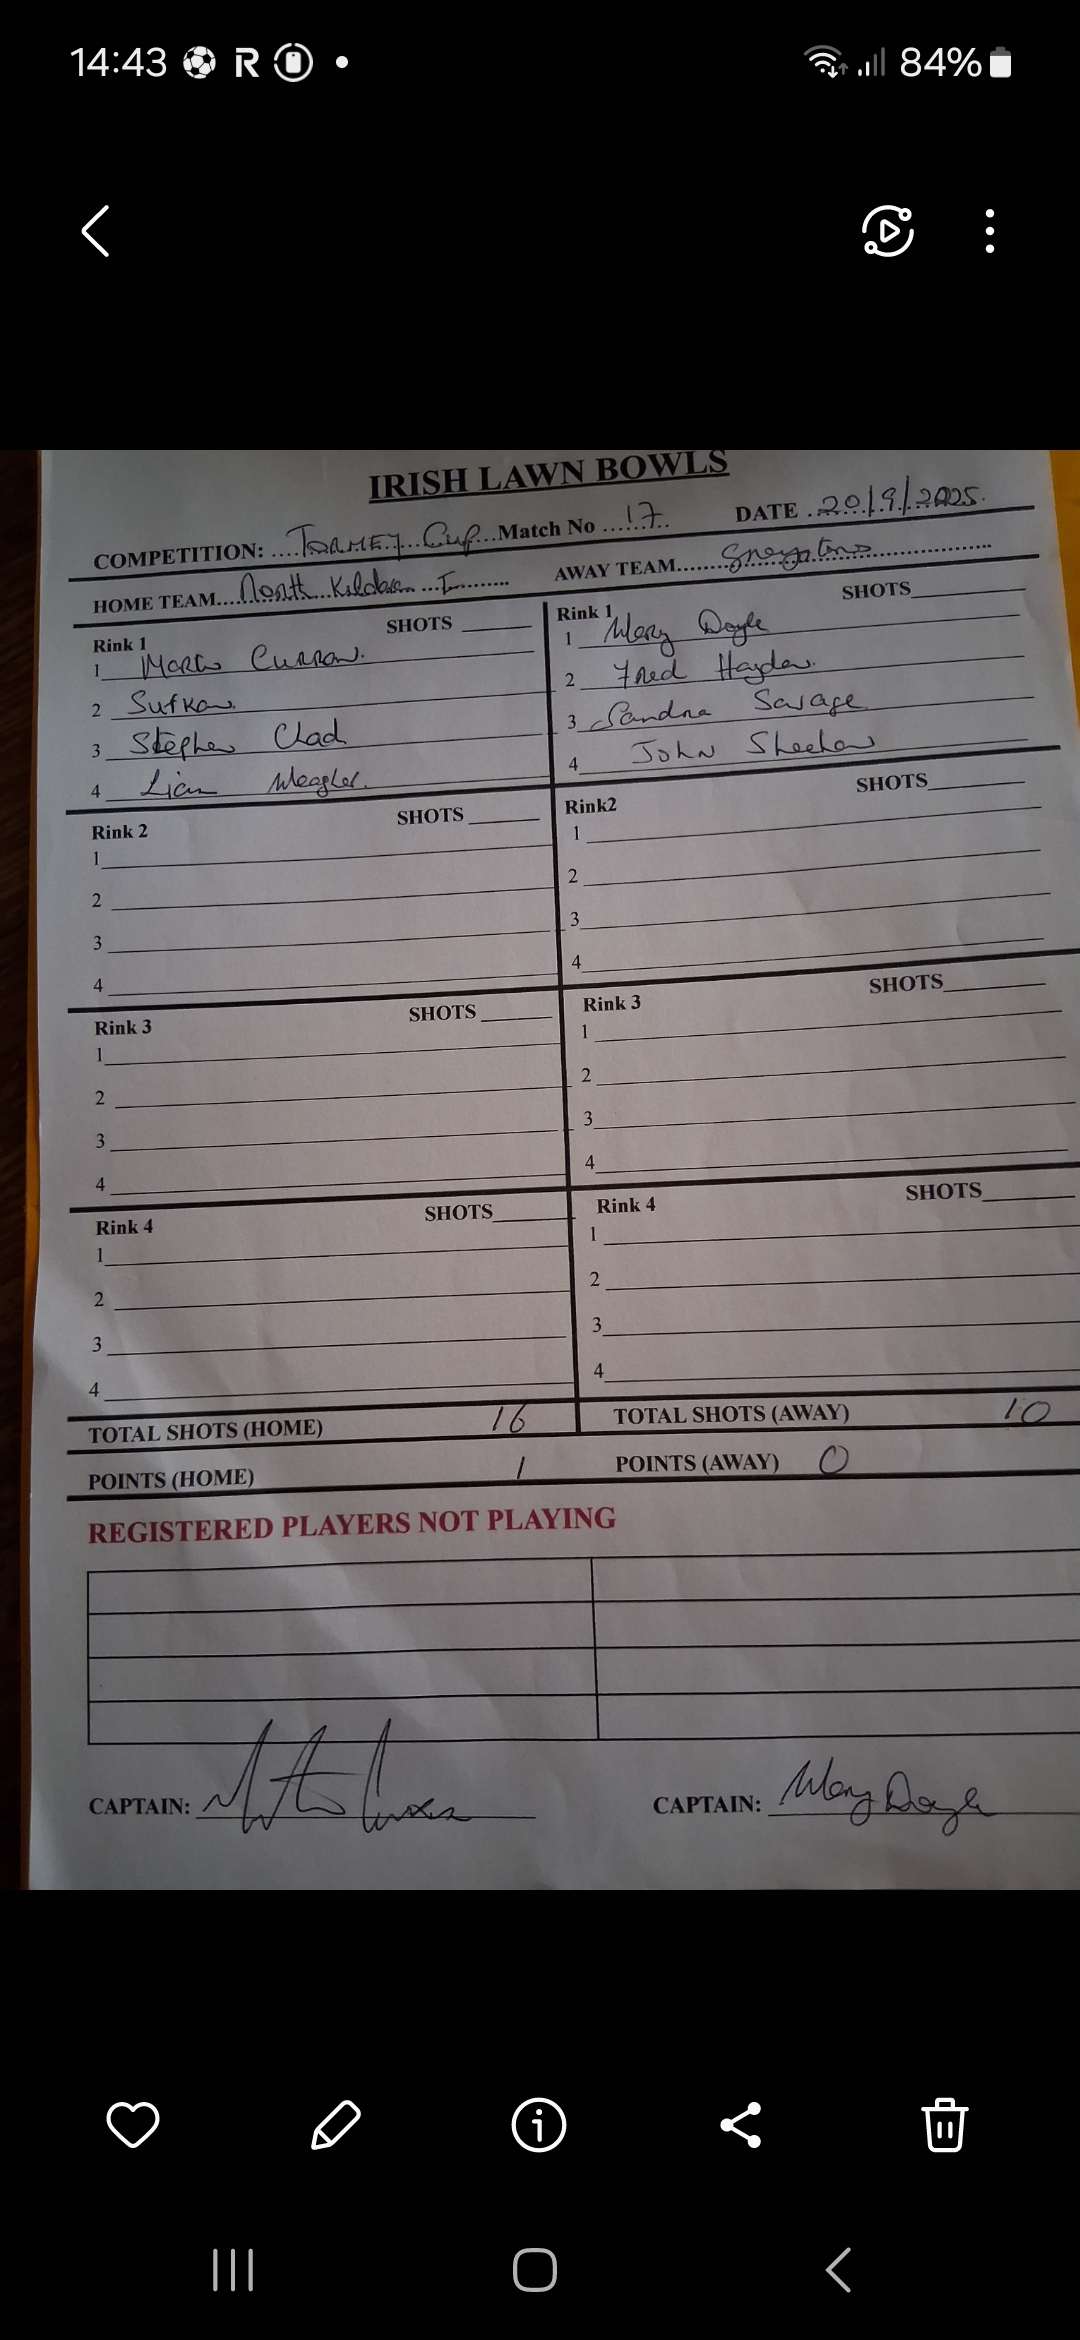 14:43 R 84%
IRISH LAWN BOWLS
COMPETITION: TORMEY Cup Match No 17 DATE 20/9/2025.
HOME TEAM North Kildare I AWAY TEAM Greystones
Rink 1 SHOTS
1 Martin Curran.
2 Sufkow
3 Stephen Clad
4 Liam Meagher.
Rink 1 SHOTS
1 Mary Doyle
2 Fred Hayden.
3 Sandra Savage
4 John Sheehan
Rink 2 SHOTS
1
2
3
4
Rink2 SHOTS
1
2
3
4
Rink 3 SHOTS
1
2
3
4
Rink 3 SHOTS
1
2
3
4
Rink 4 SHOTS
1
2
3
4
Rink 4 SHOTS
1
2
3
4
TOTAL SHOTS (HOME) 16 TOTAL SHOTS (AWAY) 10
POINTS (HOME) 1 POINTS (AWAY) 0
REGISTERED PLAYERS NOT PLAYING
CAPTAIN: CAPTAIN: Mary Doyle